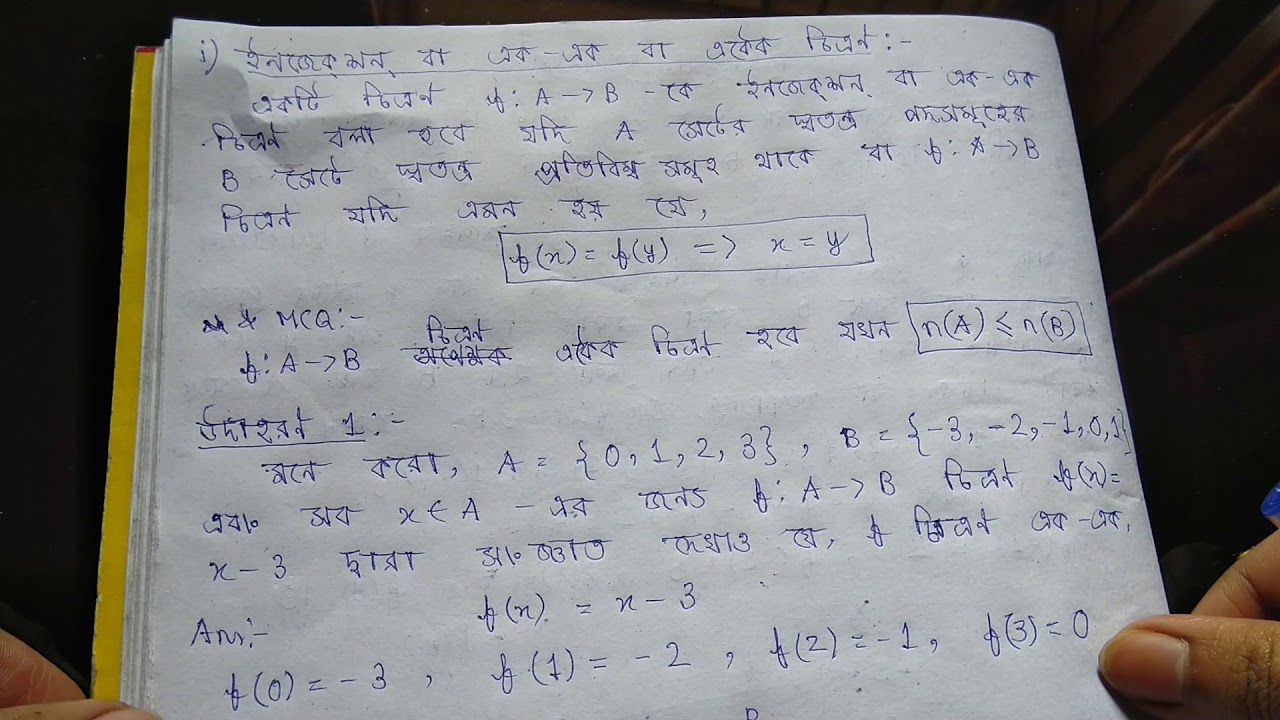 i) ইনজেক্শন্ বা এক-এক বা একৈক চিত্রণ :-
একটি চিত্রণ f: A → B -কে ইনজেক্শন্ বা এক-এক
চিত্রণ বলা হবে যদি A সেটের স্বতন্ত্র পদসমূহের
B সেটে স্বতন্ত্র প্রতিবিম্ব সমূহ থাকে বা f: A → B
চিত্রণ যদি এমন হয় যে,
f(x) = f(y) => x = y
* MCQ:-
চিত্রণ
f: A → B একৈক চিত্রণ হবে যখন n(A) ≤ n(B)
উদাহরণ 1:-
মনে করো, A = {0, 1, 2, 3}, B = {-3, -2, -1, 0, 1}
এবং সব x ∈ A -এর জন্য f: A → B চিত্রণ f(x)=
x-3 দ্বারা সংজ্ঞাত দেখাও যে, f চিত্রণ এক-এক.
f(x) = x-3
Ans:-
f(0) = -3, f(1) = -2, f(2) = -1, f(3) = 0